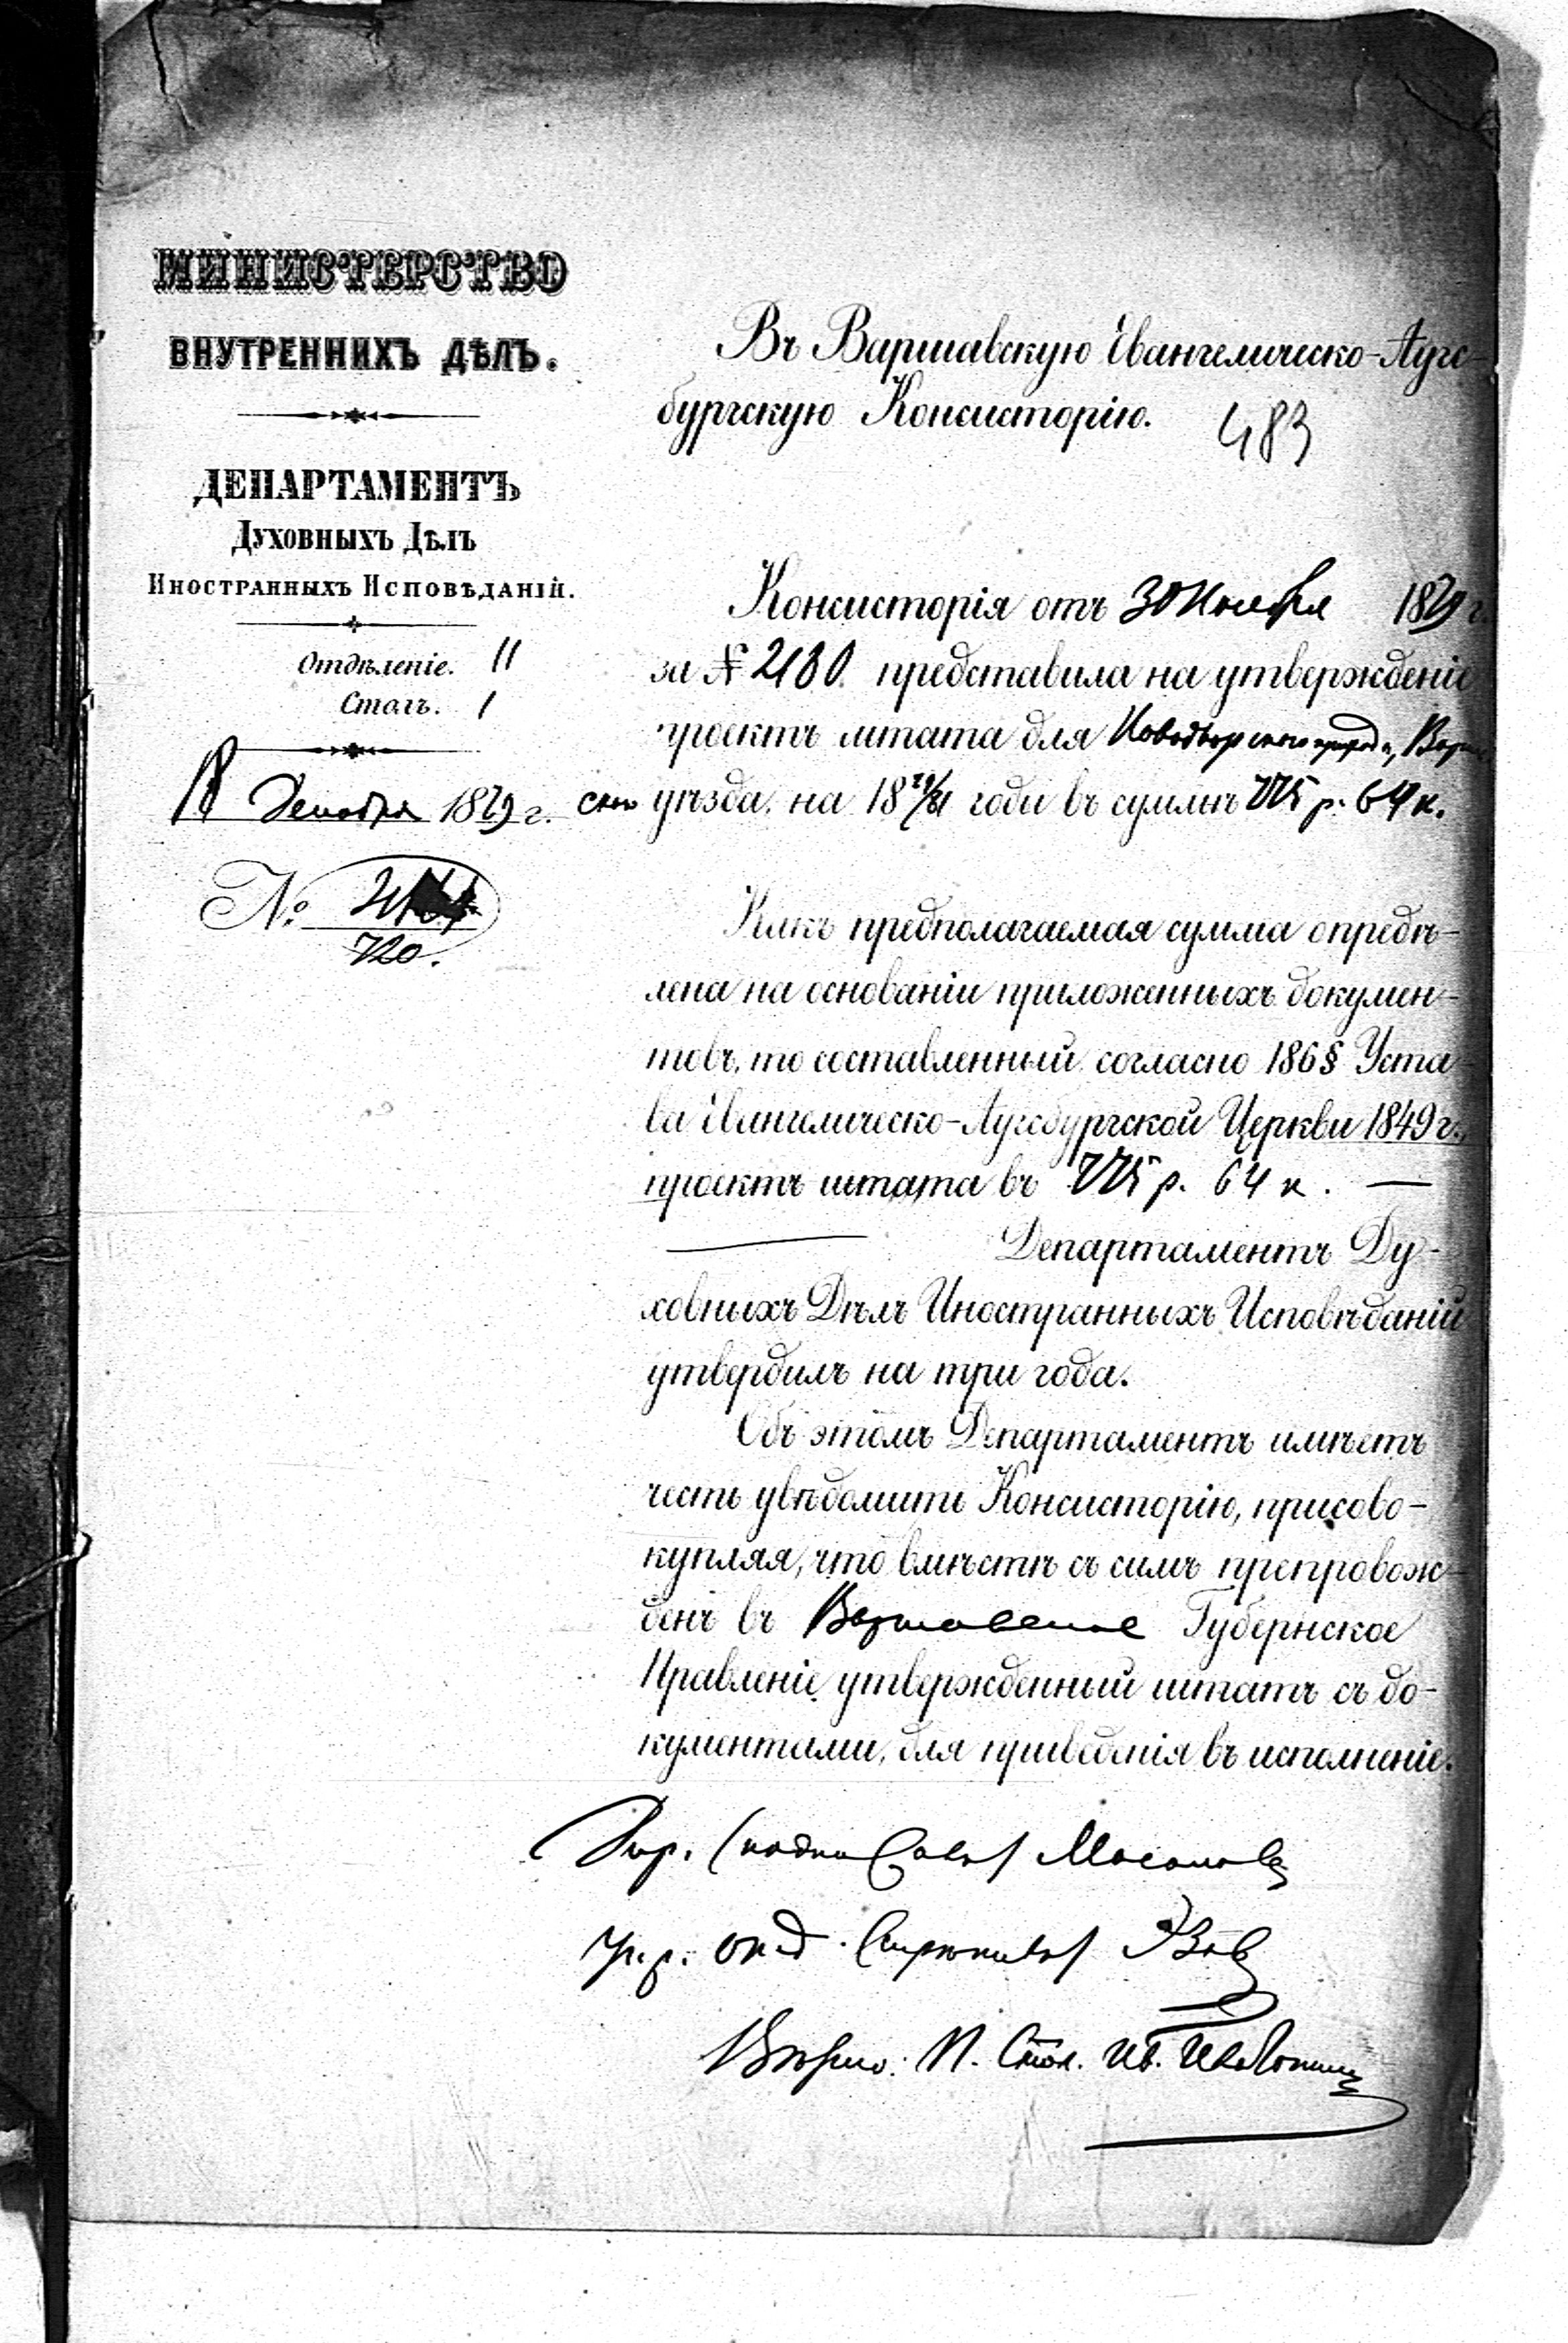 МИНИСТЕРСТВО
ВНУТРЕННИХЪ ДѢЛЪ.
ДЕПАРТАМЕНТЪ
ДУХОВНЫХЪ ДѢЛЪ
ИНОСТРАННЫХЪ ИСПОВѢДАНІЙ.
Отдѣленіе. II
Столъ. 1
Декабря 1879 г.
№
720.
Въ Варшавскую Евангелическо-Аугс-
бургскую Консисторію.
483
Консисторія отъ 30 Ноября 1879 г.
за № 2180 представила на утвержденіе
проектъ штата для Новодворского прихода, Варшав
скаго уѣзда, на 18 79/81 годы въ суммѣ 775 р. 64 к.
Какъ предполагаемая сумма опредѣ-
лена на основаніи приложенныхъ докумен-
товъ, то составленный согласно 186 § Уста
ва Евангелическо-Аугсбургской Церкви 1849 г.,
проектъ штата въ 775 р. 64 к. —
Департаментъ Ду-
ховныхъ Дѣлъ Иностранныхъ Исповѣданій
утвердилъ на три года.
Объ этомъ Департаментъ имѣетъ
честь увѣдомить Консисторію, присово-
купляя, что вмѣстѣ съ симъ препровож-
денъ въ Варшавское Губернское
Правленіе утвержденный штатъ съ до-
кументами, для приведенія въ исполненіе.
Дир. (подписалъ) Мосоловъ
Упр. отд. (скрѣпилъ)
Вѣрно: П. Стол. Ив.